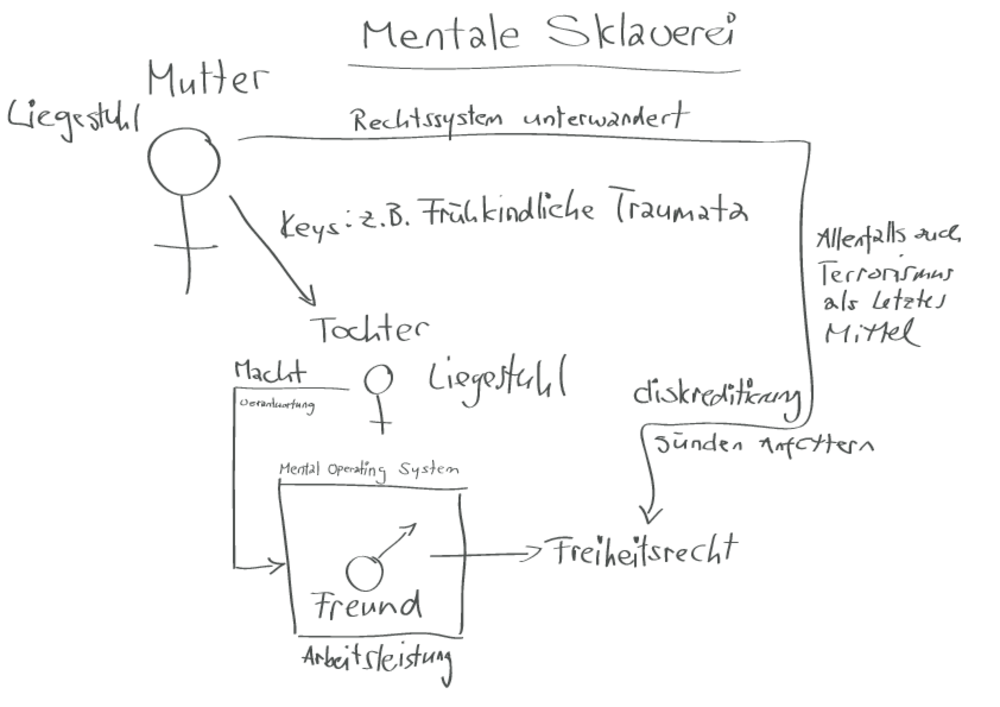 Mentale Sklaverei
Mutter
Liegestuhl
Rechtssystem unterwandert
Keys: z.B. Frühkindliche Traumata
Allenfalls auch
Terrorismus
als letztes
Mittel
Tochter
Liegestuhl
Macht
Verantwortung
diskreditierung
Sünden
Mental Operating System
Freiheitsrecht
Freund
Arbeitsleistung